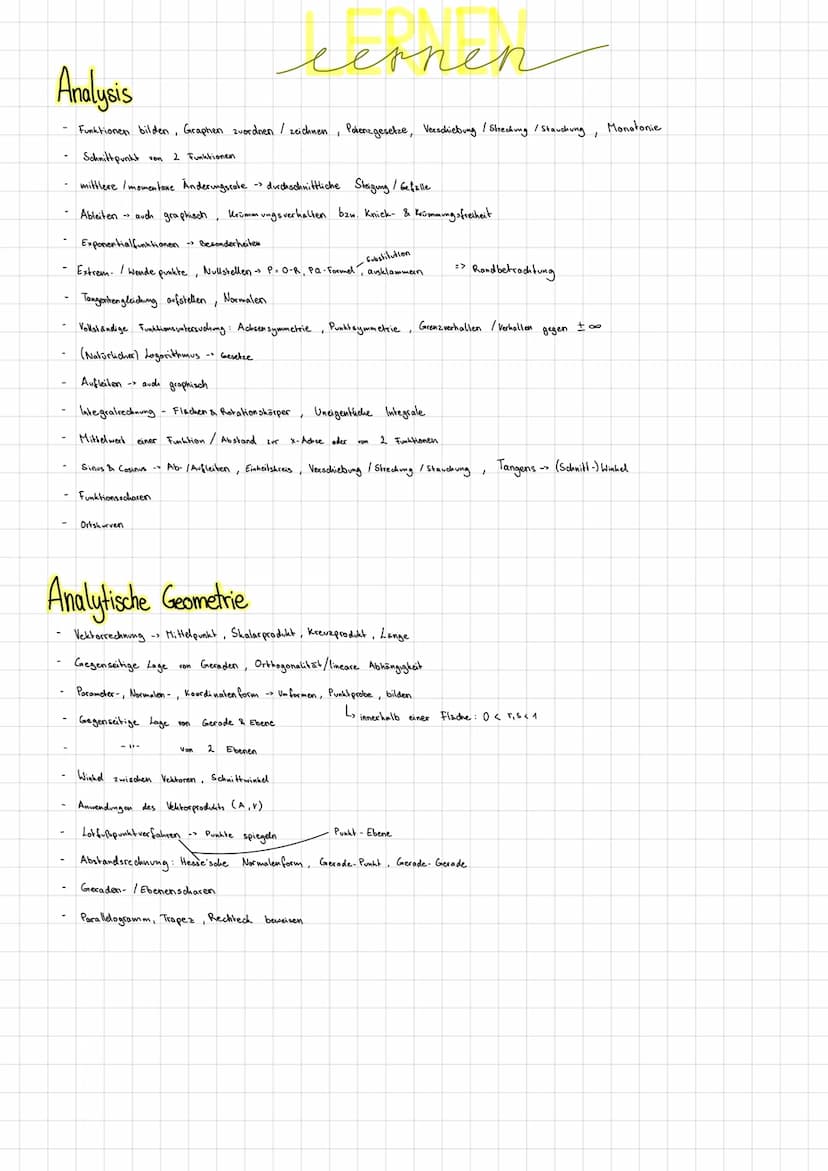 LERNEN
lernen
Analysis
- Funktionen bilden, Graphen zuordnen / zeichnen, Potenzgesetze, Verschiebung / Streckung / Stauchung, Monotonie
- Schnittpunkt von 2 Funktionen
- mittlere / momentane Änderungsrate -> durchschnittliche Steigung / Gefälle
- Ableiten -> auch graphisch, Krümmungsverhalten bzw. Knick- & Krümmungsfreiheit
- Exponentialfunktionen -> Besonderheiten
Substitution
- Extrem- / Wendepunkte, Nullstellen -> P-O-R, PQ-Formel, ausklammern => Randbetrachtung
- Tangentengleichung aufstellen, Normalen
- Vollständige Funktionsuntersuchung: Achsensymmetrie, Punktsymmetrie, Grenzverhalten / Verhalten gegen ± ∞
- (Natürlicher) Logarithmus -> Gesetze
- Aufleiten -> auch graphisch
- Integralrechnung - Flächen & Rotationskörper, Uneigentliche Integrale
- Mittelwert einer Funktion / Abstand zur x-Achse oder von 2 Funktionen
- Sinus & Cosinus -> Ab- / Aufleiten, Einheitskreis, Verschiebung / Streckung / Stauchung, Tangens -> (Schnitt-) Winkel
- Funktionsscharen
- Ortskurven
Analytische Geometrie
- Vektorrechnung -> Mittelpunkt, Skalarprodukt, Kreuzprodukt, Länge
- Gegenseitige Lage von Geraden, Orthogonalität/lineare Abhängigkeit
- Parameter-, Normalen-, Koordinatenform -> Umformen, Punktprobe, bilden
↳ innerhalb einer Fläche: 0 < r,s < 1
- Gegenseitige Lage von Gerade & Ebene
- -"- von 2 Ebenen
- Winkel zwischen Vektoren, Schnittwinkel
- Anwendungen des Vektorprodukts (A, V)
- Lotfußpunktverfahren -> Punkte spiegeln Punkt-Ebene
- Abstandsrechnung: Hesse'sche Normalenform, Gerade-Punkt, Gerade-Gerade
- Geraden- / Ebenenscharen
- Parallelogramm, Trapez, Rechteck beweisen